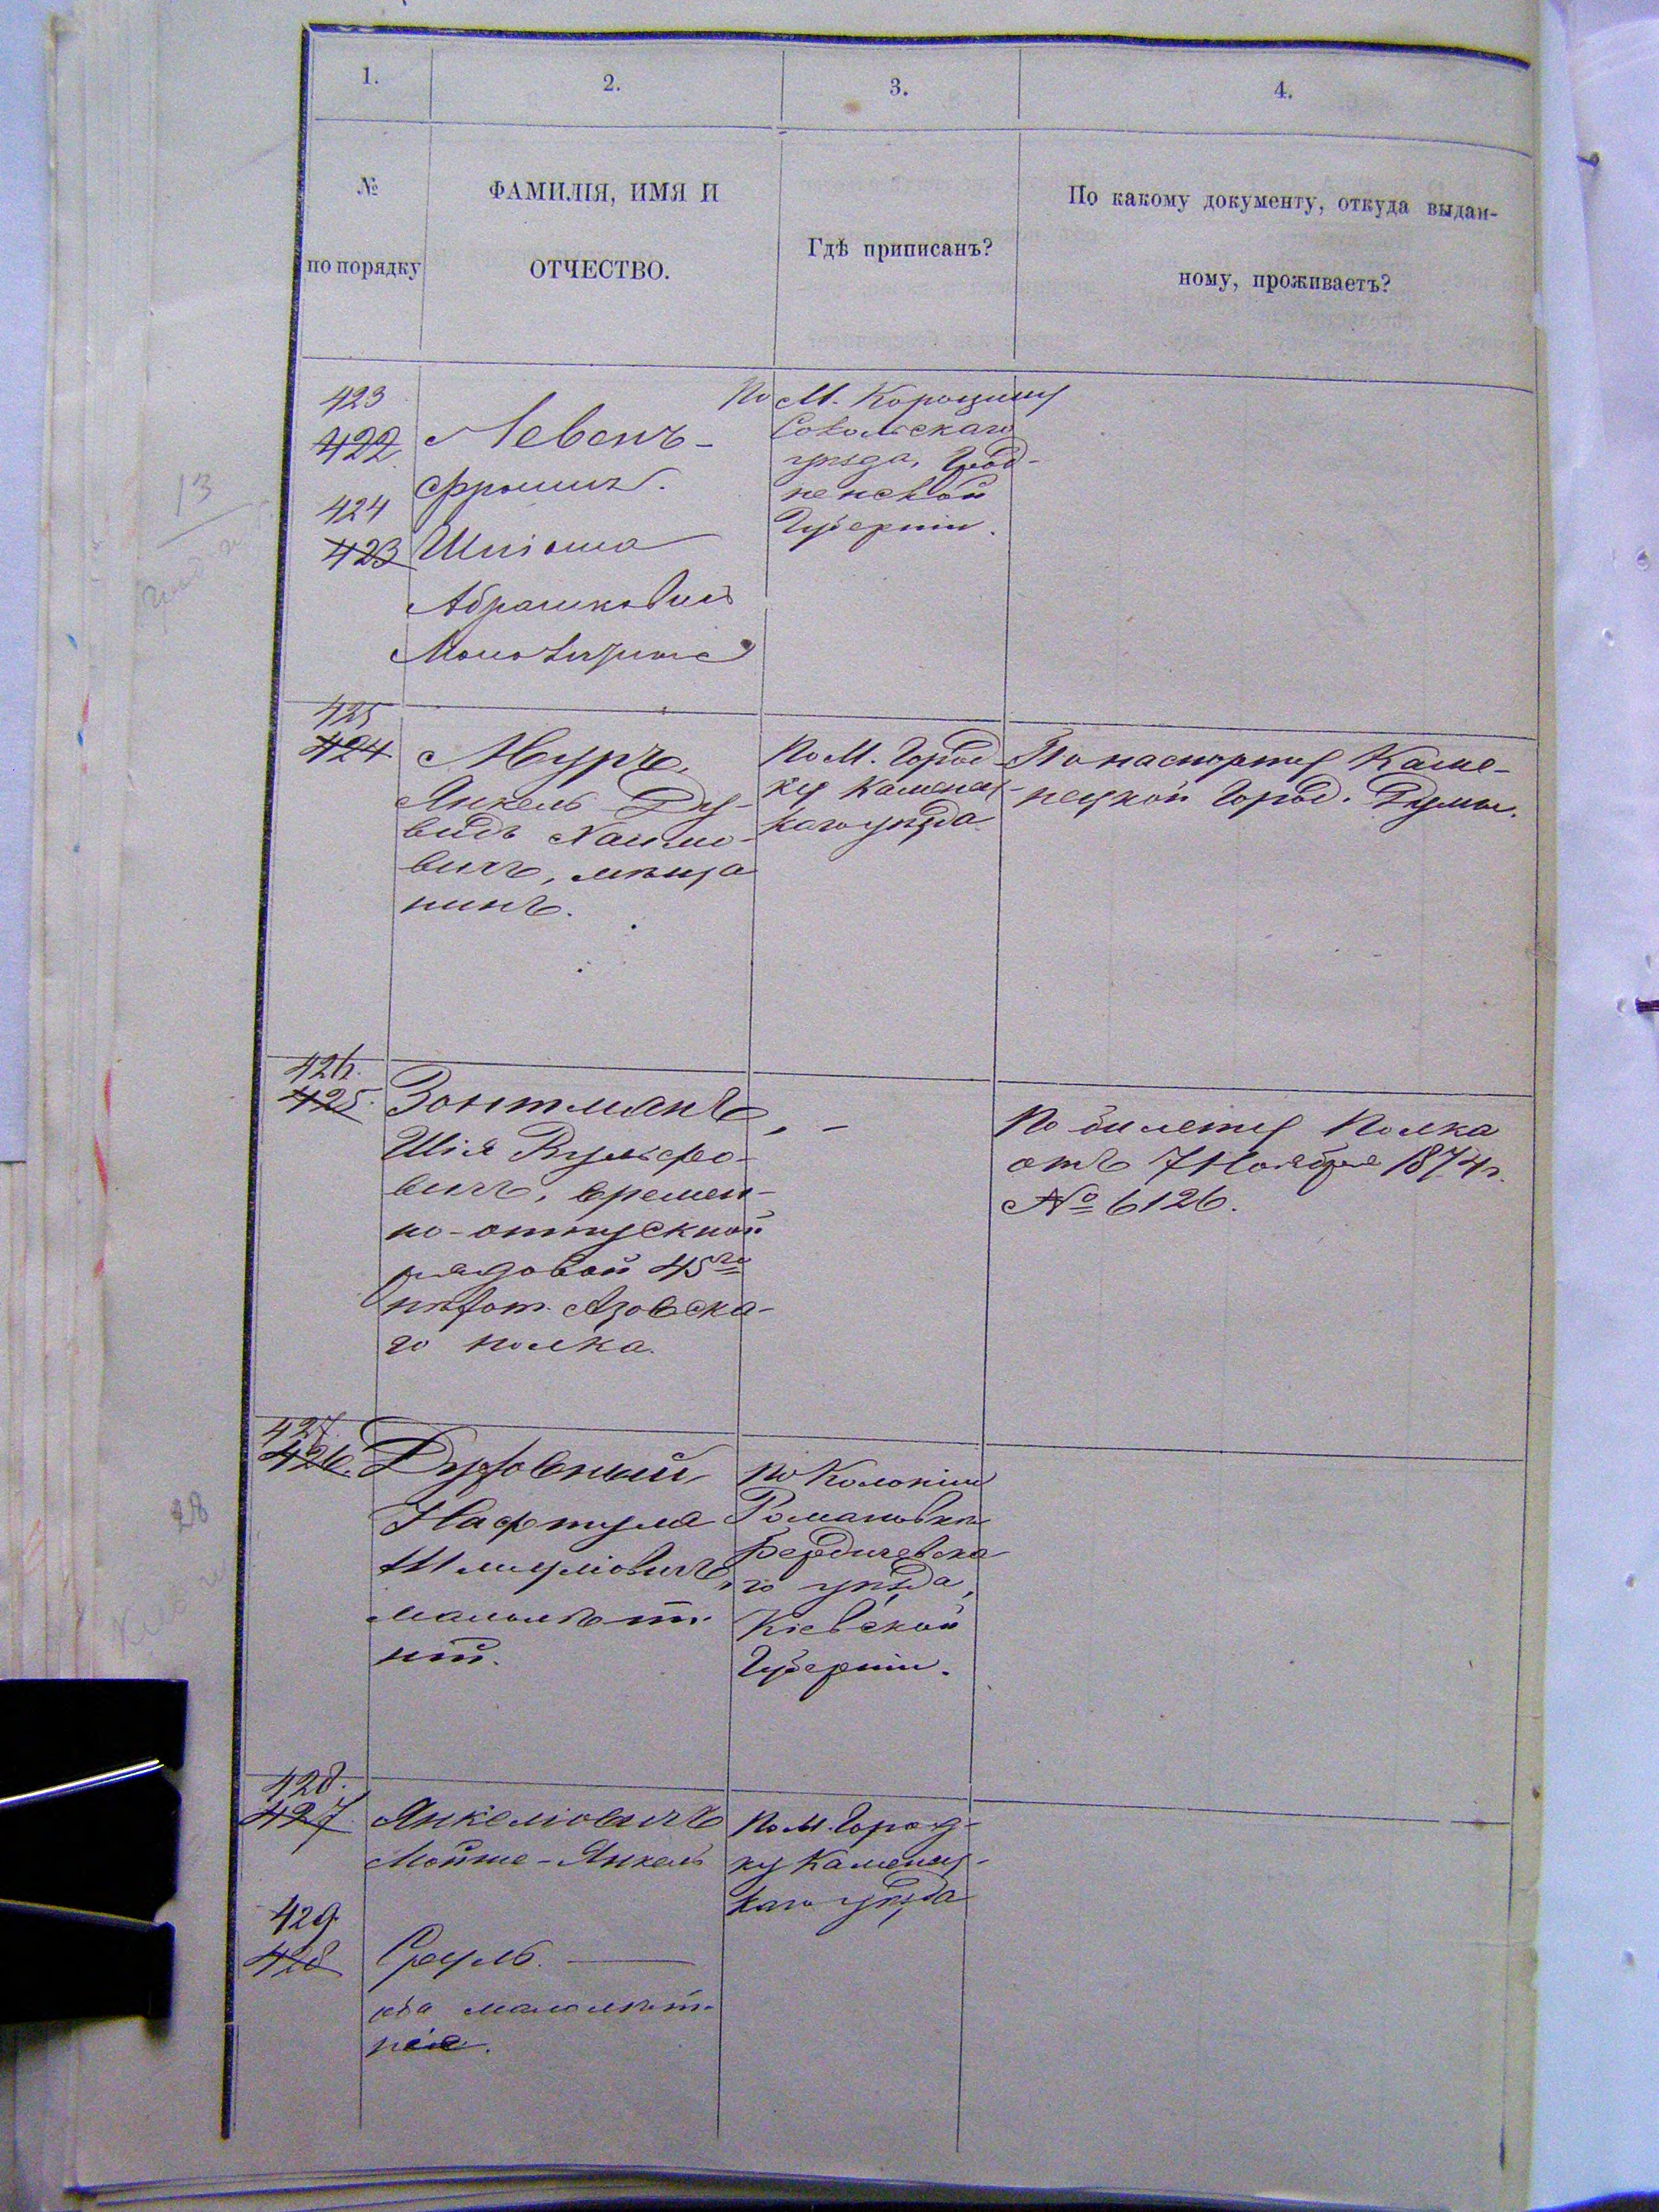 1.
2.
3.
4.
№
по порядку
ФАМИЛІЯ, ИМЯ И
ОТЧЕСТВО.
Гдѣ приписанъ?
По какому документу, откуда выдан-
ному, проживаетъ?
423
422
424
423
Левенъ-
Фроимъ.
Шліома
Абрашковичъ
По М. Корощину
Сокольскаго
уѣзда, Грод-
ненской
Губерніи.
13
425
424
Мурчъ,
Янкель Ду-
видъ Хаимо-
вичъ, мѣща
нинъ.
По М. Город-
ку Каменец-
каго уѣзда
По паспорту Каме-
нецкой Город. Думы.
426.
425.
Зонтманъ,
Шія Вульфо-
вичъ, времен-
но-отпускной
рядовой 45го
пѣхот. Азовска-
го полка.
-
По билету Полка
отъ 7 Ноября 1874 г.
№ 6126.
427.
426.
Духовный
Нафтула
Шмуліовичъ,
малолѣт-
ній.
По Колоніи
Романовки
Бердичевска
го уѣзда,
Кіевской
Губерніи.
28
428.
427
Янкеліовичъ
Мойше-Янкель
По М. Город-
ку Каменец-
каго уѣзда
429
428
Сруль. —
оба малолѣт-
ніе.